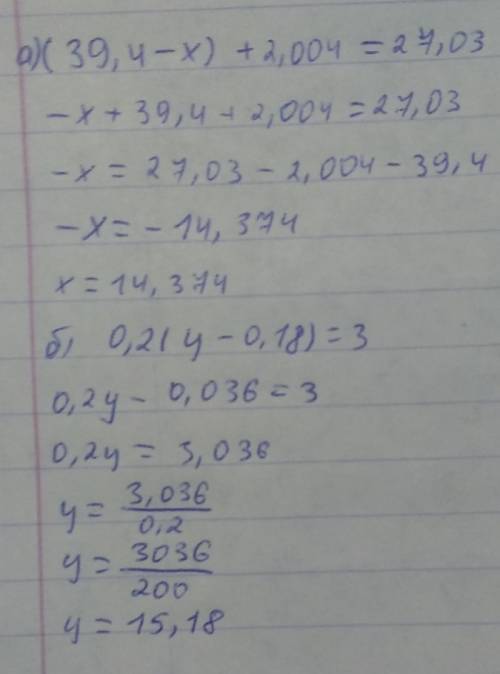 а)(39,4-x)+2,004=27,03
-x+39,4+2,004=27,03
-x=27,03-2,004-39,4
-x=-14,374
x=14,374
б) 0,2(y-0,18)=3
0,2y-0,036=3
0,2y=3,036
y=3,036/0,2
y=3036/200
y=15,18